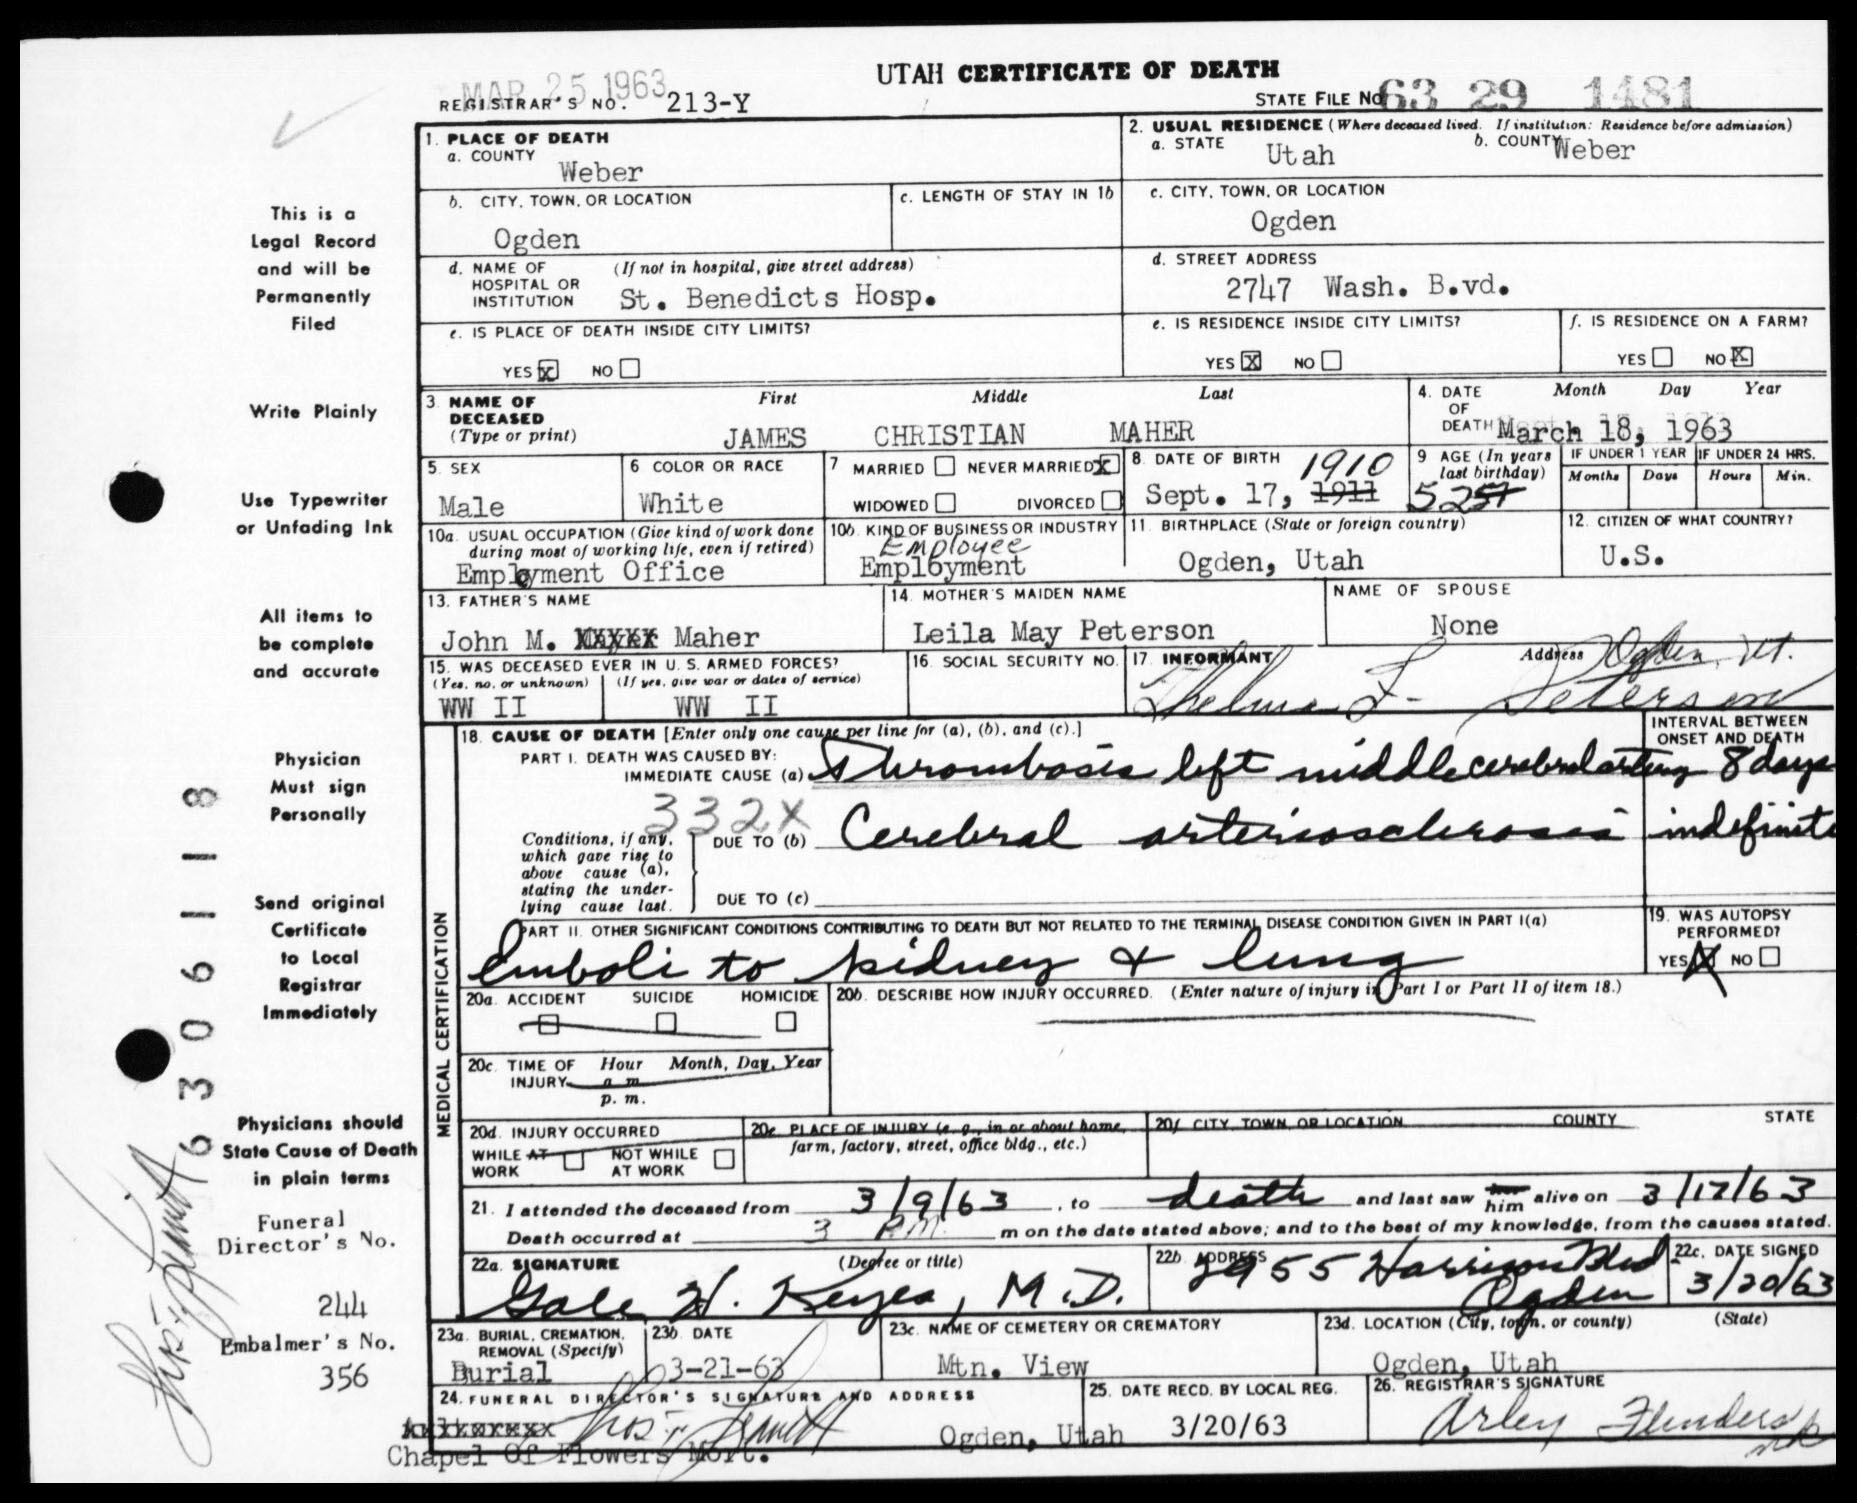 UTAH CERTIFICATE OF DEATH
MAR 25 1963
REGISTRAR'S NO. 213-Y
STATE FILE NO. 63 29 1481
1. PLACE OF DEATH
a. COUNTY
Weber
2. USUAL RESIDENCE (Where deceased lived. If institution: Residence before admission)
a. STATE Utah
b. COUNTY Weber
b. CITY, TOWN, OR LOCATION
Ogden
c. LENGTH OF STAY IN 1b
c. CITY, TOWN, OR LOCATION
Ogden
d. NAME OF HOSPITAL OR INSTITUTION
(If not in hospital, give street address)
St. Benedicts Hosp.
d. STREET ADDRESS
2747 Wash. B.vd.
e. IS PLACE OF DEATH INSIDE CITY LIMITS?
YES X NO
e. IS RESIDENCE INSIDE CITY LIMITS?
YES X NO
f. IS RESIDENCE ON A FARM?
YES NO X
3. NAME OF DECEASED (Type or print)
First Middle Last
JAMES CHRISTIAN MAHER
4. DATE OF DEATH
Month Day Year
March 18, 1963
5. SEX
Male
6 COLOR OR RACE
White
7 MARRIED NEVER MARRIED X
WIDOWED DIVORCED
8. DATE OF BIRTH
1910
Sept. 17, 1911
9 AGE (In years last birthday)
52 51
IF UNDER 1 YEAR
Months Days
IF UNDER 24 HRS.
Hours Min.
10a. USUAL OCCUPATION (Give kind of work done during most of working life, even if retired)
Employment Office
10b. KIND OF BUSINESS OR INDUSTRY
Employee
Employment
11. BIRTHPLACE (State or foreign country)
Ogden, Utah
12. CITIZEN OF WHAT COUNTRY?
U.S.
13. FATHER'S NAME
John M. Maher
14. MOTHER'S MAIDEN NAME
Leila May Peterson
NAME OF SPOUSE
None
15. WAS DECEASED EVER IN U. S. ARMED FORCES?
(Yes, no, or unknown) (If yes, give war or dates of service)
WW II WW II
16. SOCIAL SECURITY NO.
17. INFORMANT Address
Ogden, Ut.
Thelma L. Peterson
MEDICAL CERTIFICATION
18. CAUSE OF DEATH [Enter only one cause per line for (a), (b), and (c).]
INTERVAL BETWEEN ONSET AND DEATH
PART I. DEATH WAS CAUSED BY:
IMMEDIATE CAUSE (a) Thrombosis left middle cerebral artery 8 days
332X
Conditions, if any, which gave rise to above cause (a), stating the underlying cause last.
DUE TO (b) Cerebral arteriosclerosis indefinite
DUE TO (c)
PART II. OTHER SIGNIFICANT CONDITIONS CONTRIBUTING TO DEATH BUT NOT RELATED TO THE TERMINAL DISEASE CONDITION GIVEN IN PART I(a)
Emboli to kidney & lung
19. WAS AUTOPSY PERFORMED?
YES X NO
20a. ACCIDENT SUICIDE HOMICIDE
20b. DESCRIBE HOW INJURY OCCURRED. (Enter nature of injury in Part I or Part II of item 18.)
20c. TIME OF INJURY Hour Month, Day, Year
a. m.
p. m.
20d. INJURY OCCURRED
WHILE AT WORK NOT WHILE AT WORK
20e. PLACE OF INJURY (e. g., in or about home, farm, factory, street, office bldg., etc.)
20f. CITY, TOWN, OR LOCATION COUNTY STATE
21. I attended the deceased from 3/9/63, to death and last saw her him alive on 3/17/63
Death occurred at 3 P.M. m on the date stated above; and to the best of my knowledge, from the causes stated.
22a. SIGNATURE (Degree or title)
Gale H. Keyes, M.D.
22b. ADDRESS
2955 Harrison Blvd
Ogden
22c. DATE SIGNED
3/20/63
23a. BURIAL, CREMATION, REMOVAL (Specify)
Burial
23b. DATE
3-21-63
23c. NAME OF CEMETERY OR CREMATORY
Mtn. View
23d. LOCATION (City, town, or county) (State)
Ogden, Utah
24. FUNERAL DIRECTOR'S SIGNATURE AND ADDRESS
Ogden, Utah
Chapel Of Flowers Mort.
25. DATE RECD. BY LOCAL REG.
3/20/63
26. REGISTRAR'S SIGNATURE
Arley Flinders
This is a
Legal Record
and will be
Permanently
Filed
Write Plainly
Use Typewriter
or Unfading Ink
All items to
be complete
and accurate
Physician
Must sign
Personally
Send original
Certificate
to Local
Registrar
Immediately
Physicians should
State Cause of Death
in plain terms
Funeral
Director's No.
244
Embalmer's No.
356